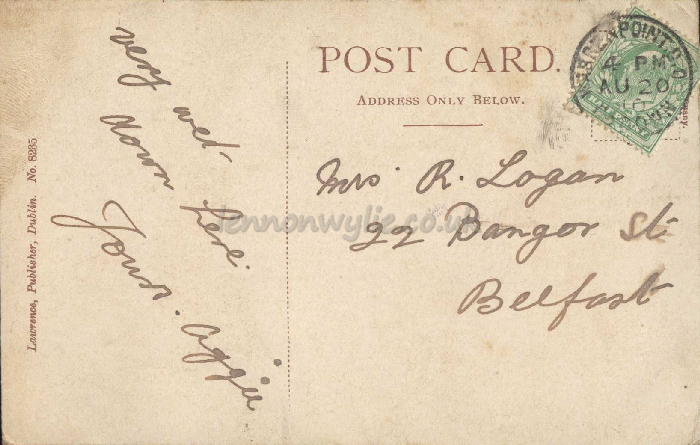 very wet
down here.
Yours. Aggie
Lawrence, Publisher, Dublin. No. 8235
POST CARD.
ADDRESS ONLY BELOW.
Mrs R. Logan
22 Bangor St
Belfast
GREENPOINT. S.O
4 PM
AU 20
10
DOWN
HALFPENNY
lennonwylie.co.uk